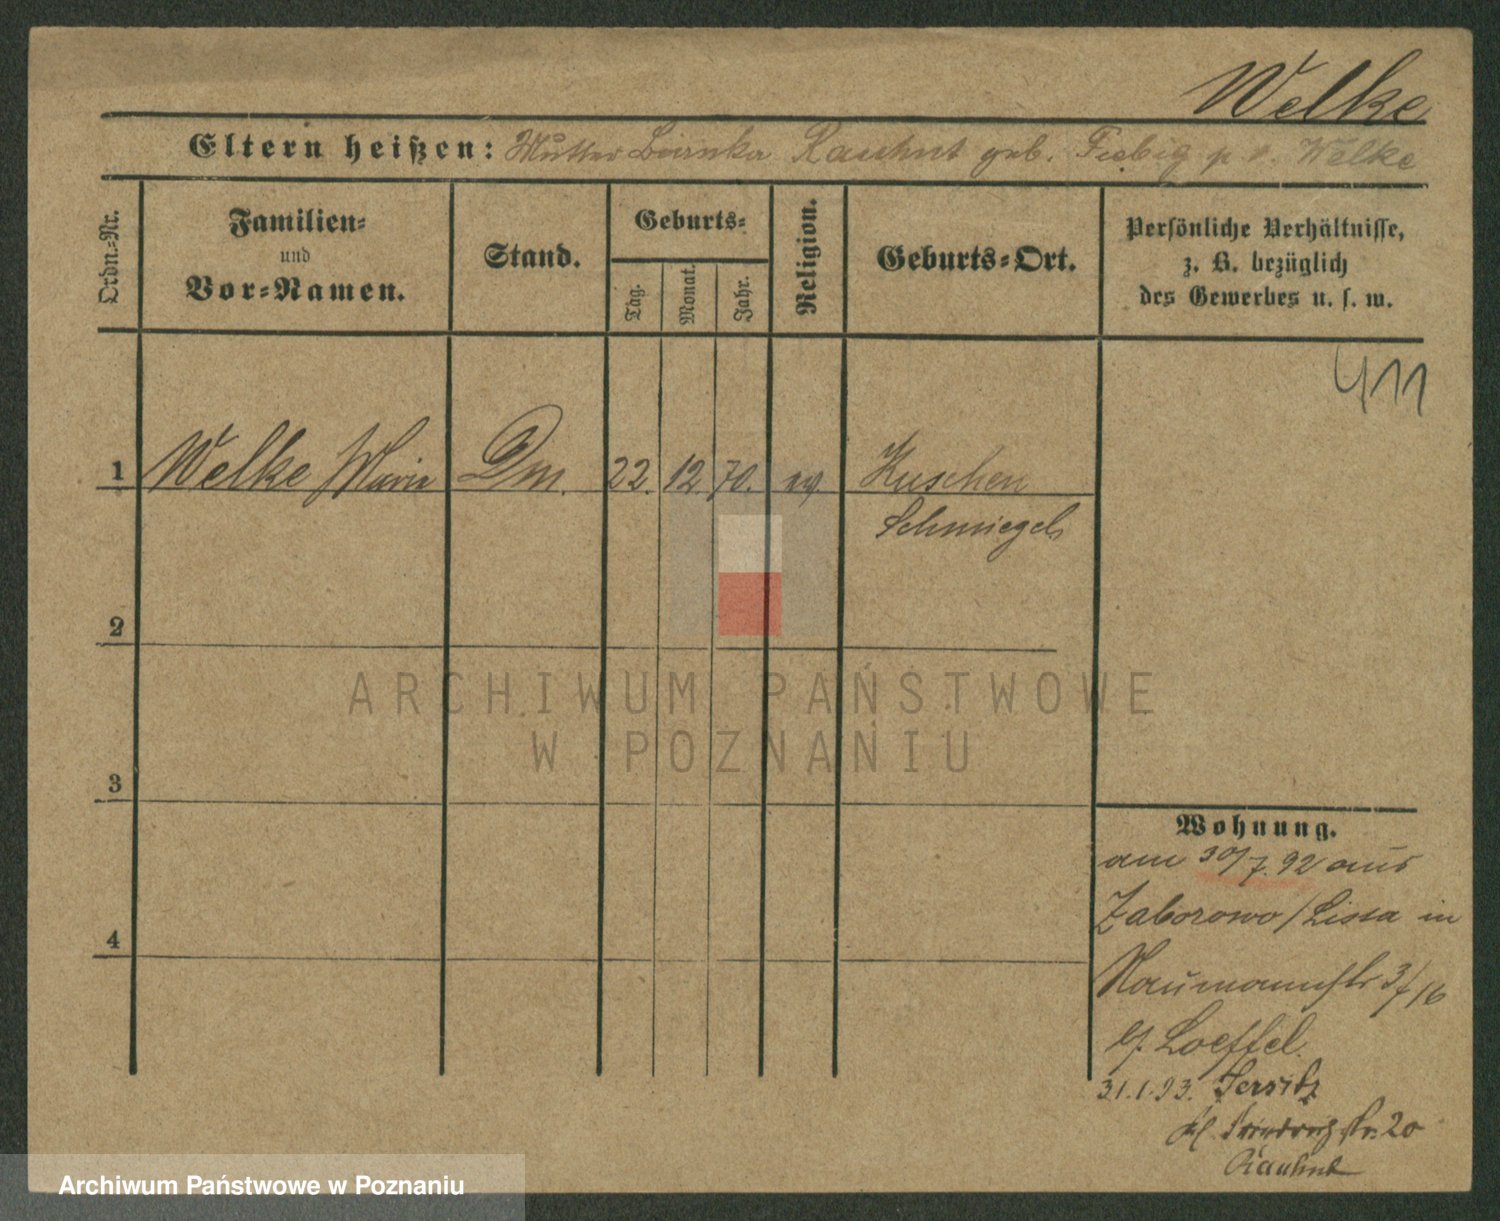 Welke
Eltern heißen: Mutter Bianka Rauhut geb. Fiebig p. v. Welke
Ordn.-Nr.
Familien-
und
Vor-Namen.
Stand.
Geburts-
Tag.
Monat.
Jahr.
Religion.
Geburts-Ort.
Persönliche Verhältnisse,
z. B. bezüglich
des Gewerbes u. s. w.
411
1 Welke Maria Dm. 22. 12. 70. ev. Kuschen
Schmiegel
2
3
4
Wohnung.
am 30/7. 92 aus
Zaborowo/Lissa in
Naumannstr 3/16
b/ Loeffel.
31.1.93. Jersitz
kl. str. 20
Rauhut
ARCHIWUM PAŃSTWOWE
W POZNANIU
Archiwum Państwowe w Poznaniu